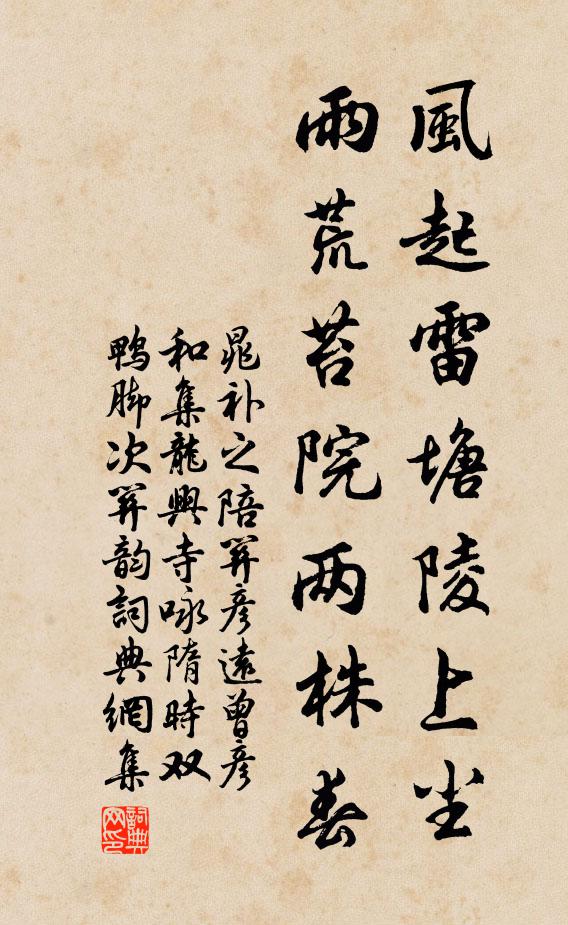 風起雷塘陵上尘
雨荒苔院两株春
晁补之陪関彦遠曾彦
和集龍興寺咏隋時双
鴨脚次関韵詞典網集
詞典网印